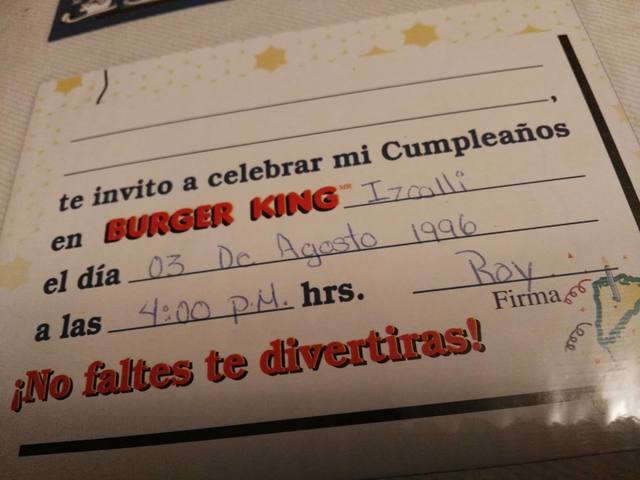 ,
te invito a celebrar mi Cumpleaños
en BURGER KING MR Izcalli
el día 03 De Agosto 1996
a las 4:00 P.M. hrs. Roy
Firma
¡No faltes te divertiras!